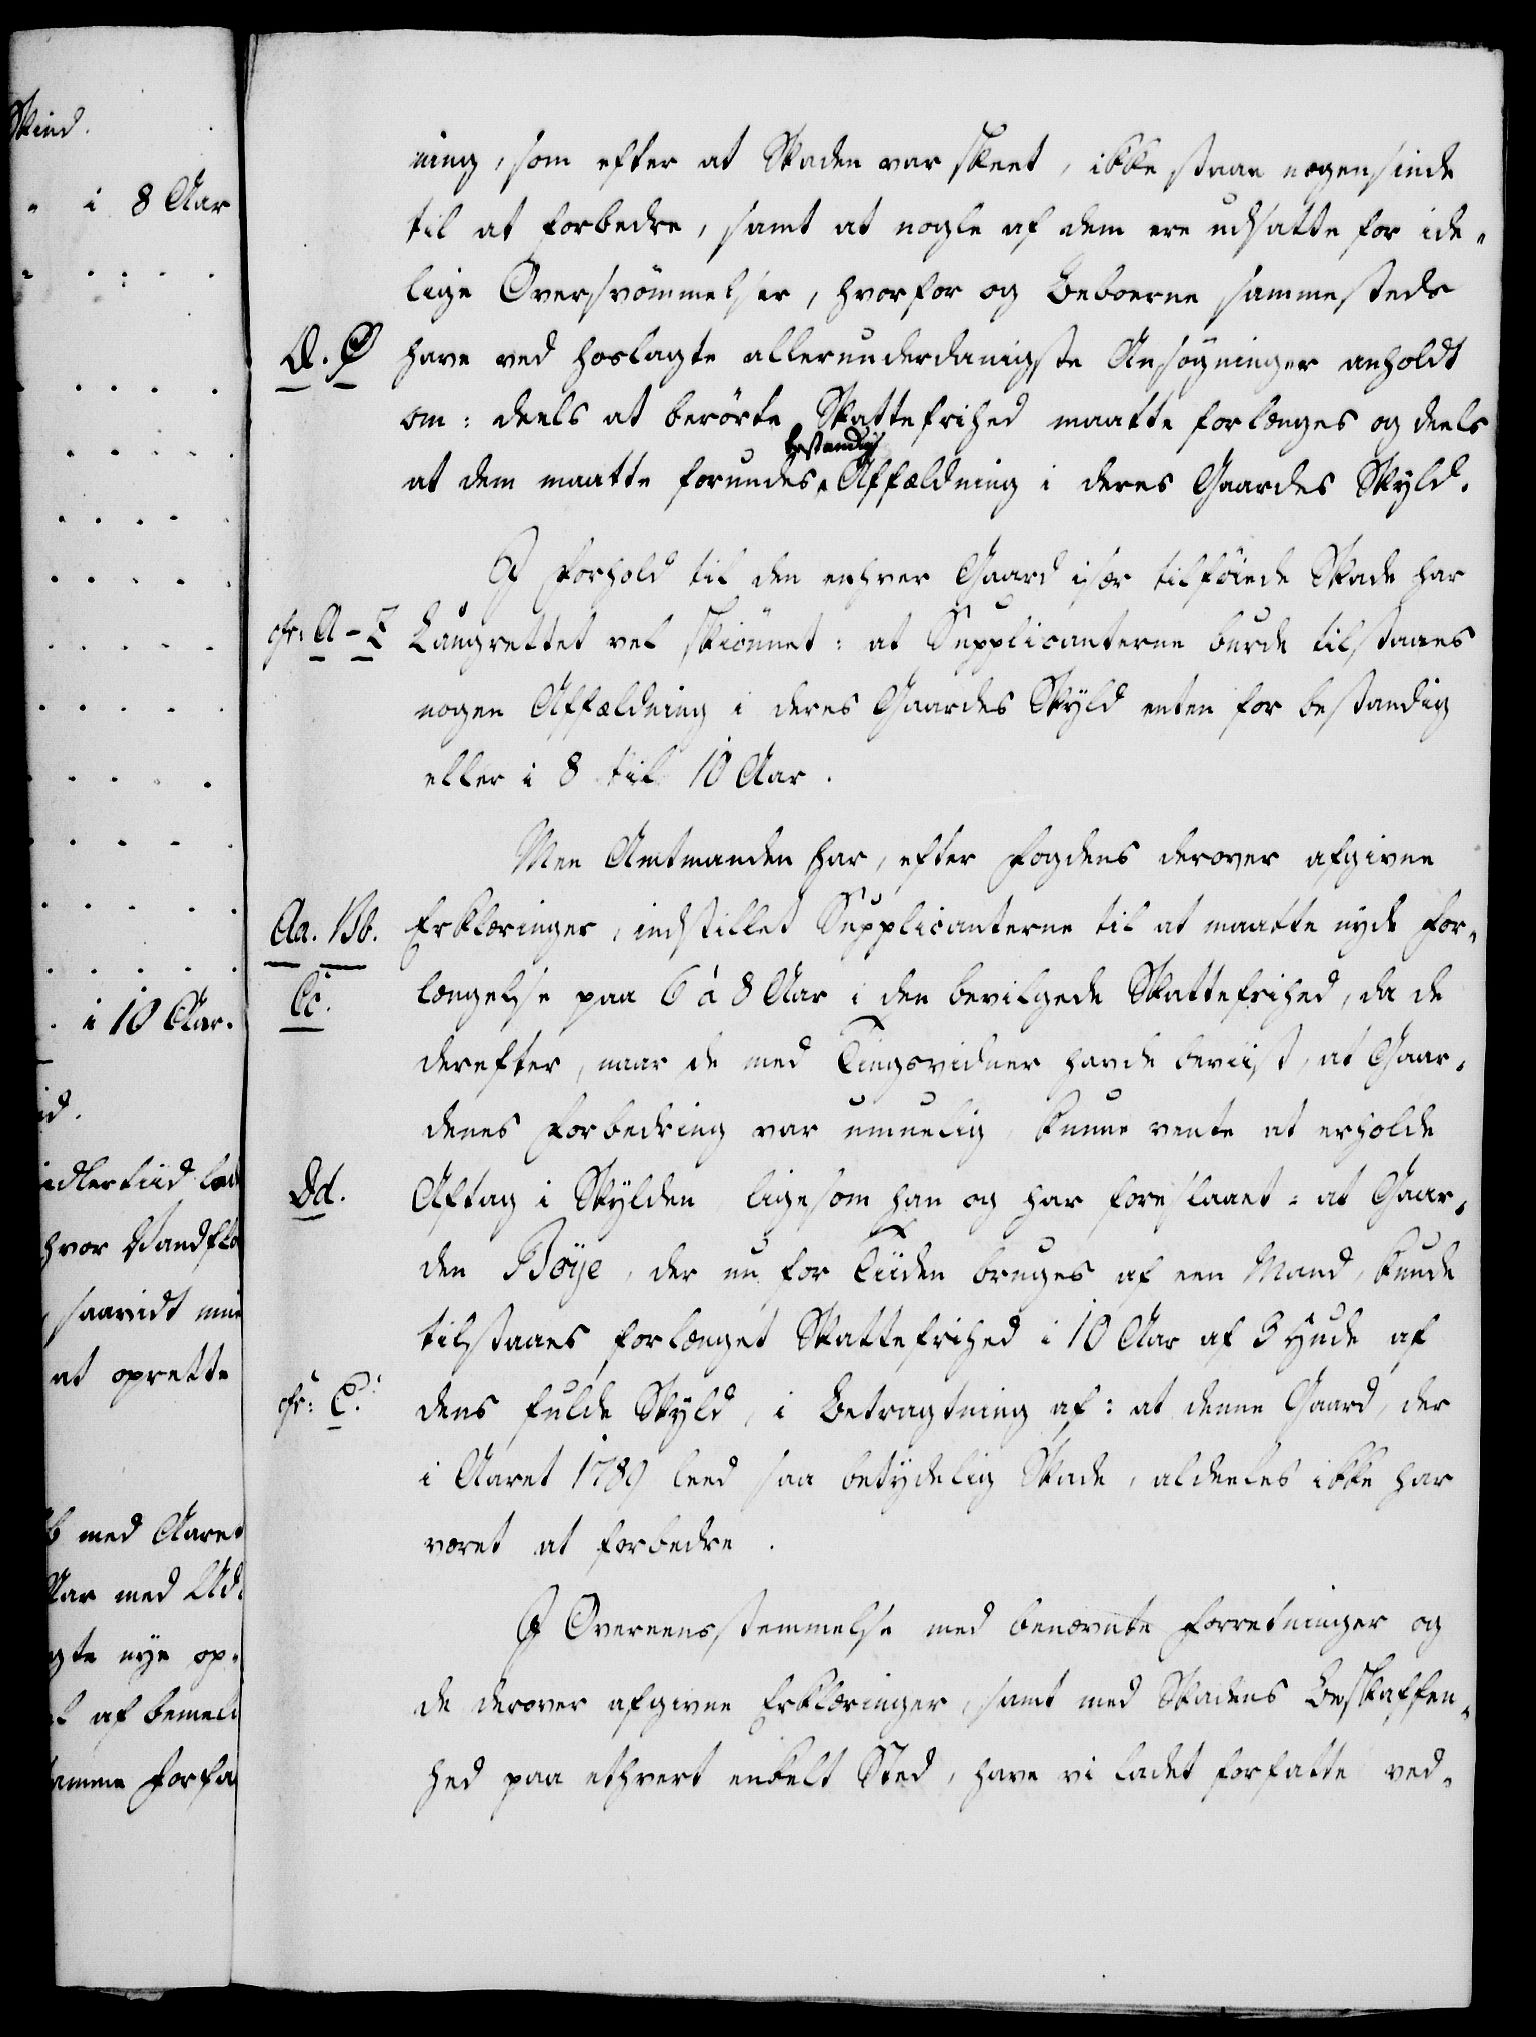 Skind.
i 8 Aar
i 10 Aar.
id.
idlertiid lad
hvor Vandflo
saavidt min
at oprette
b med Aaret
Aar med Ud-
gte nye op-
l af bemeld
samme Forfa
ning, som efter at Skaden var skeet, ikke staae nogensinde
til at forbedre, samt at nogle af dem ere udsatte for ide-
lige Oversvömmelser, hvorfor og Beboerne sammesteds
Q. Ø have ved hoslagte allerunderdanigste Ansøgninger anholdt
om: deels at berörte Skattefrihed maatte forlænges og deels
bestandig
at dem maatte forundes Affældning i deres Gaardes Skyld.
I Forhold til den enhver Gaard især tilföiede Skade har
cfr: A - Z Laugrettet vel skiönnet: at Supplicanterne burde tilstaaes
nogen Affældning i deres Gaardes Skyld enten for bestandig
eller i 8 til 10 Aar.
Men Amtmanden har, efter Fogdens derover afgivne
Aa. Bb. Erklæringer, indstillet Supplicanterne til at maatte nyde For-
Cc. længelse paa 6 à 8 Aar i den bevilgede Skattefrihed, da de
derefter, naar de med Tingsvidner havde beviist, at Gaar-
denes Forbedring var umuelig, kunne vente at erholde
Dd. Aftag i Skylden, ligesom han og har foreslaaet: at Gaar-
den Böye, der nu for Tiiden bruges af een Mand, kunde
tilstaaes forlænget Skattefrihed i 10 Aar af 3 Hude af
cfr: C. dens fulde Skyld, i Betragtning af: at denne Gaard, der
i Aaret 1789 leed saa betydelig Skade, aldeeles ikke har
været at forbedre.
I Overeensstemmelse med benævnte Forretninger og
de derover afgivne Erklæringer, samt med Skadens Beskaffen-
hed paa ethvert enkelt Sted, have vi ladet forfatte ved-